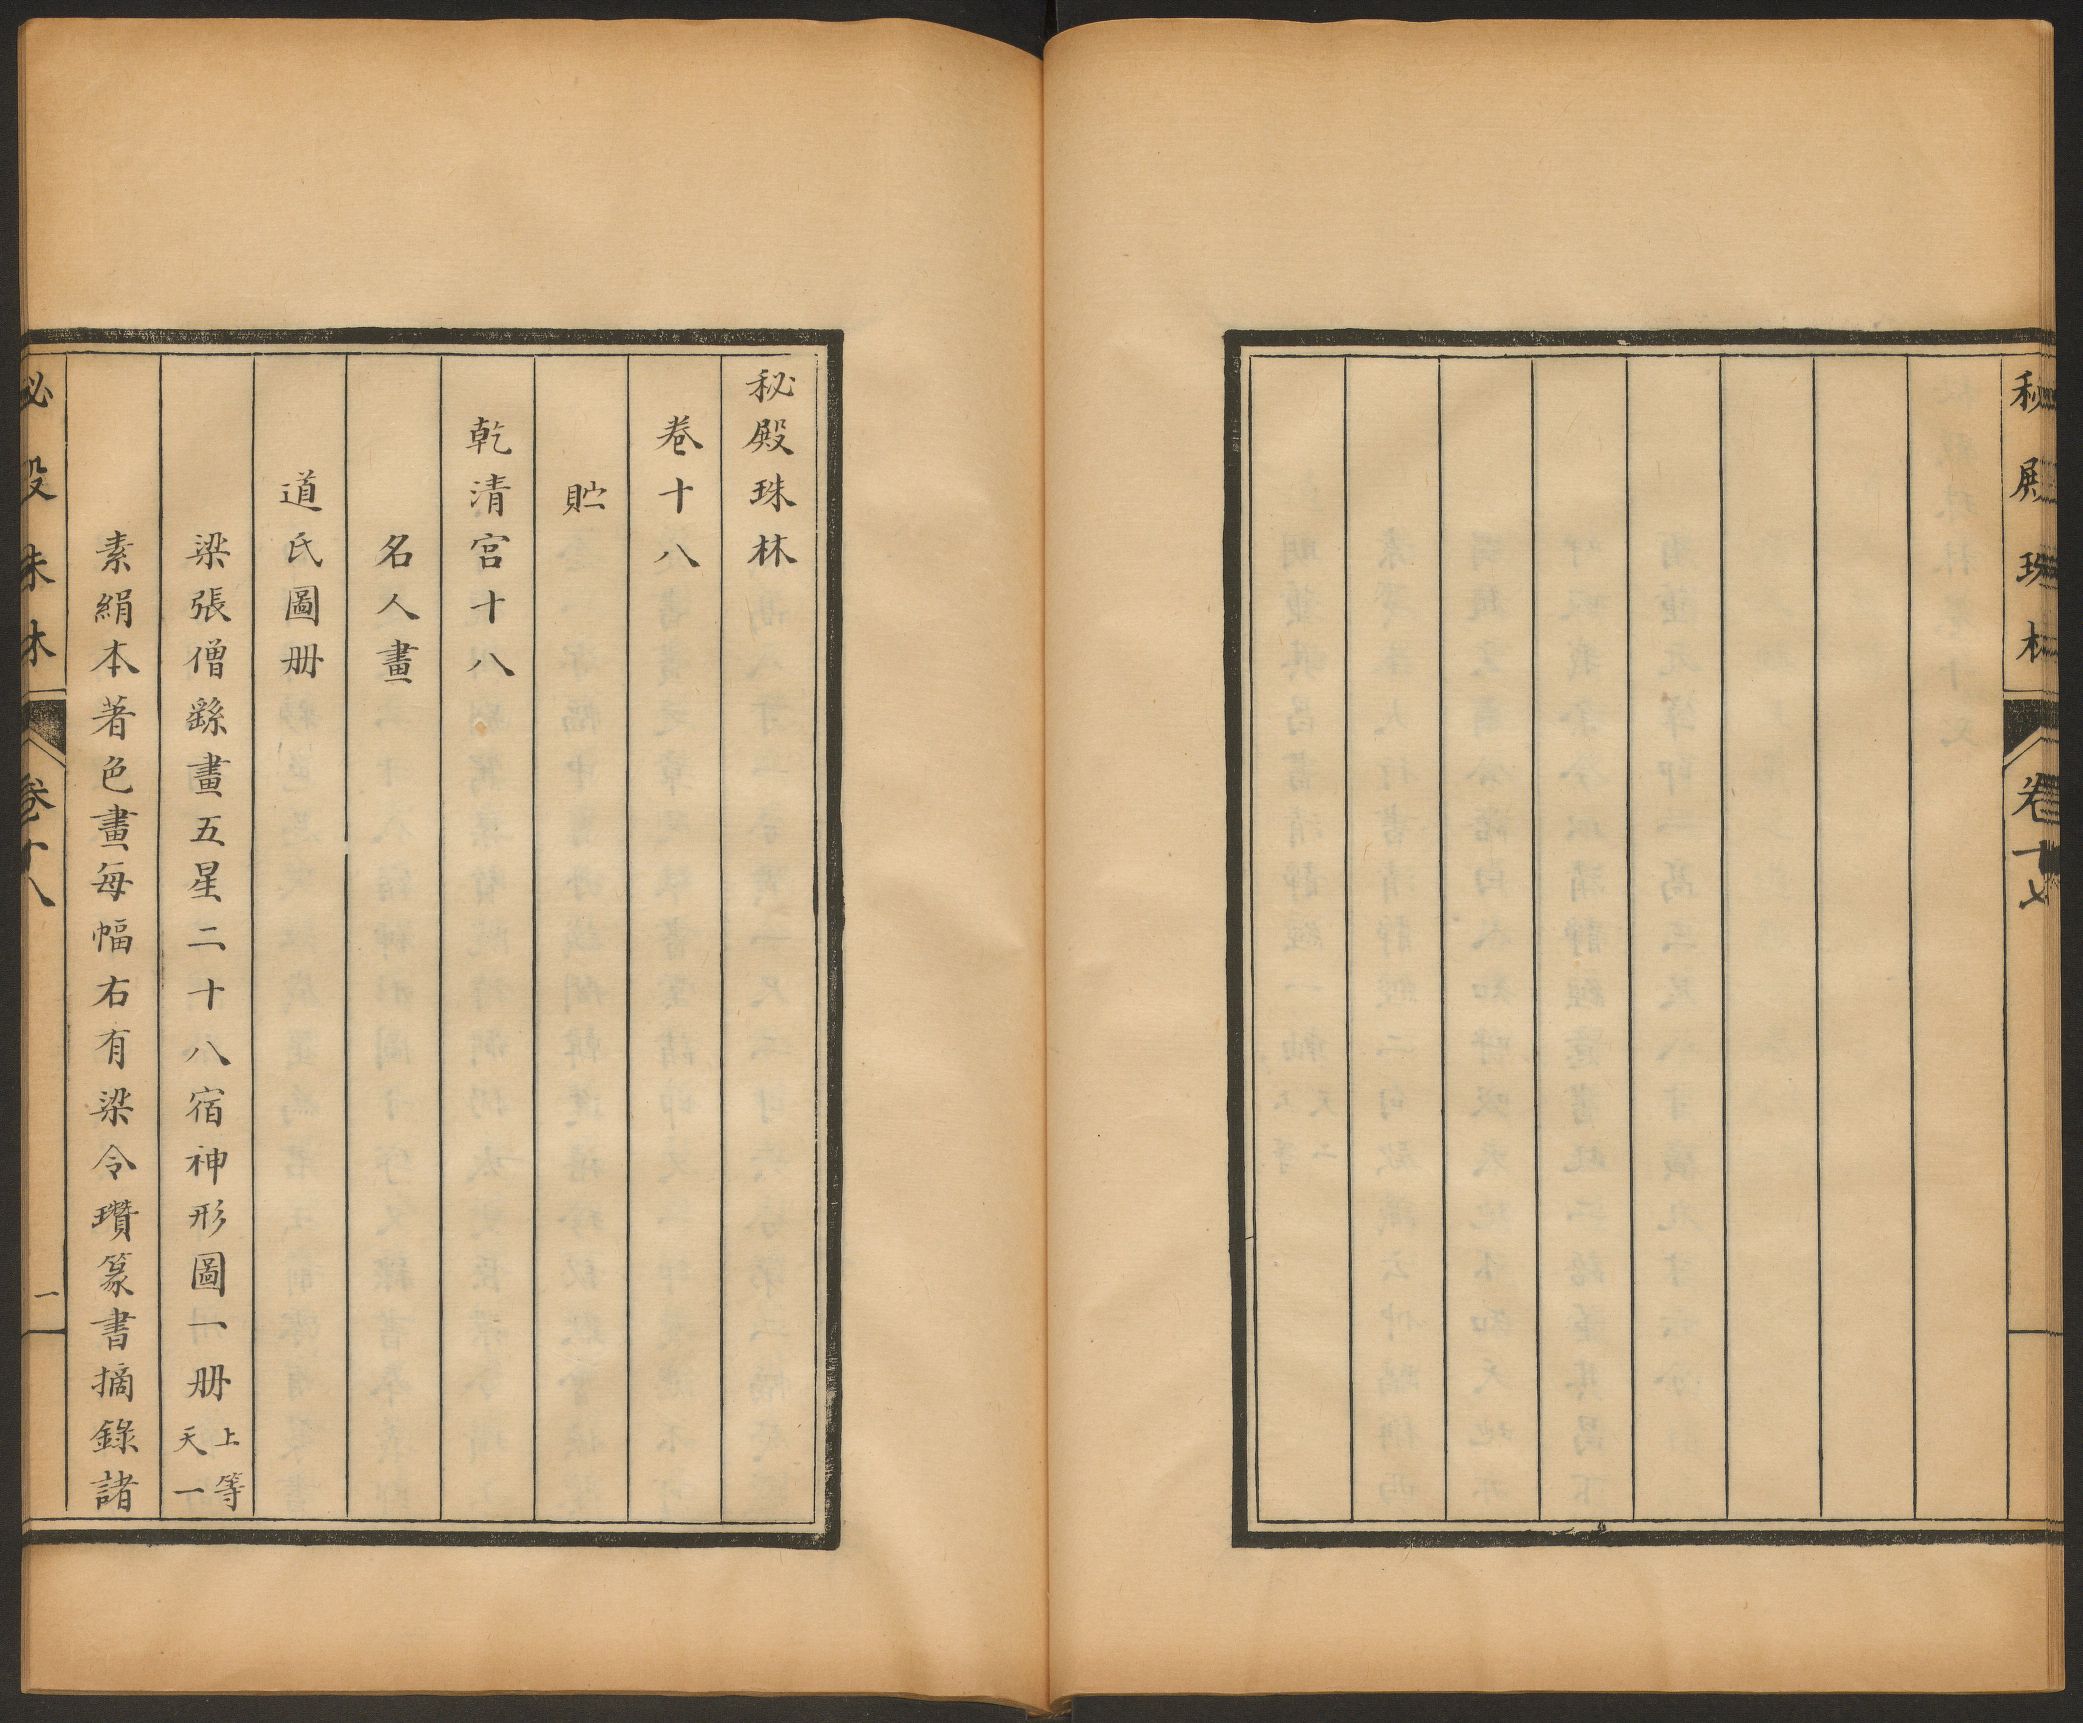 秘殿珠林
卷十七
秘殿珠林
卷十八
貯
乾清宮十八
名人畫
道氏圖册
梁張僧繇畫五星二十八宿神形圖一册上等天一
素絹本著色畫每幅右有梁令瓚篆書摘錄諸
秘殿珠林
卷十八
一